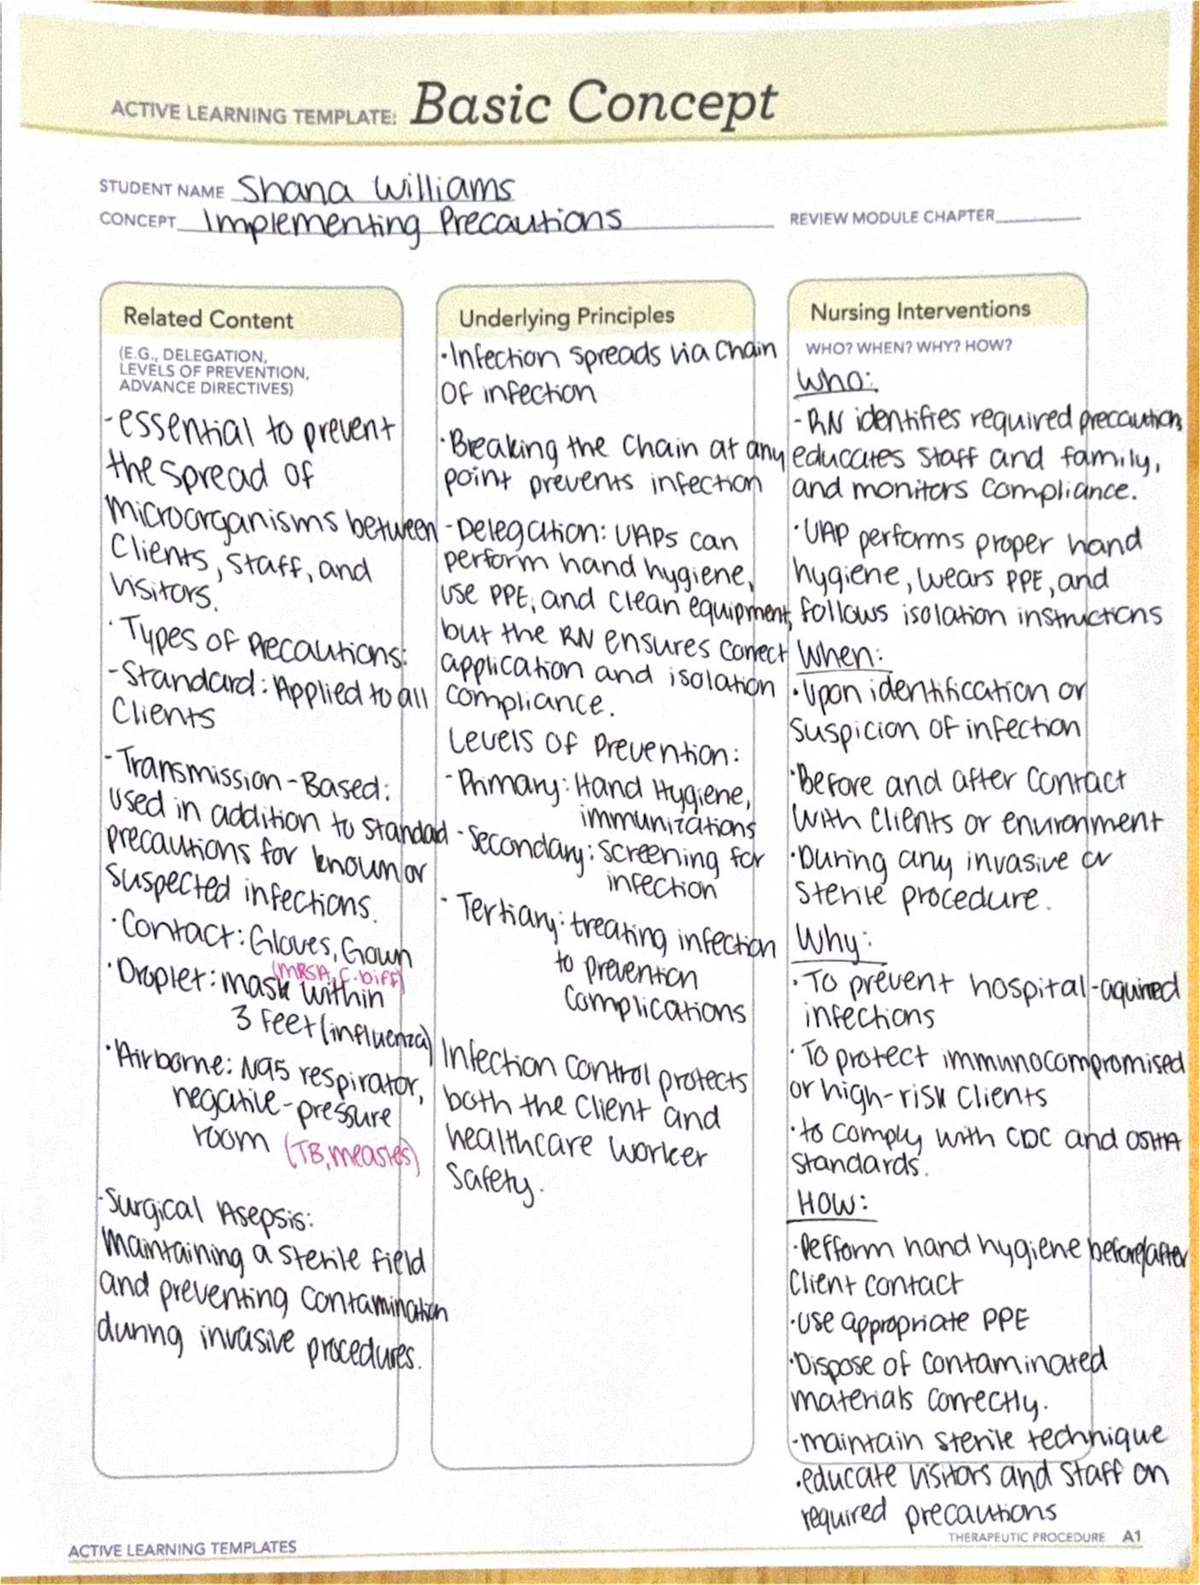 ACTIVE LEARNING TEMPLATE: Basic Concept
STUDENT NAME Shana Williams
CONCEPT Implementing Precautions
REVIEW MODULE CHAPTER
Related Content
(E.G., DELEGATION,
LEVELS OF PREVENTION,
ADVANCE DIRECTIVES)
-essential to prevent
the spread of
microorganisms between
Clients, Staff, and
Visitors.
·Types of Precautions:
-Standard: Applied to all
Clients
-Transmission-Based:
used in addition to standard
precautions for known or
suspected infections.
·Contact: Gloves, Gown
(MRSA, C. Diff)
·Droplet: mask within
3 feet (influenza)
·Airborne: N95 respirator,
negative-pressure
room (TB, measles)
-Surgical Asepsis:
Maintaining a sterile field
and preventing contamination
during invasive procedures.
Underlying Principles
·Infection spreads via Chain
Of infection
·Breaking the Chain at any
point prevents infection
-Delegation: UAPs can
perform hand hygiene,
use PPE, and clean equipment,
but the RN ensures correct
application and isolation
compliance.
Levels of Prevention:
-Primary: Hand Hygiene,
immunizations
-Secondary: Screening for
infection
-Tertiary: treating infection
to prevention
complications
Infection Control protects
both the Client and
healthcare worker
Safety.
Nursing Interventions
WHO? WHEN? WHY? HOW?
Who:
-RN identifies required precautions
educates staff and family,
and monitors compliance.
·UAP performs proper hand
hygiene, wears PPE, and
follows isolation instructions
When:
·Upon identification or
Suspicion of infection
·Before and after contact
with clients or environment
·During any invasive or
sterile procedure.
Why:
·To prevent hospital-aquired
infections
·To protect immunocompromised
or high-risk clients
·to comply with CDC and OSHA
Standards.
HOW:
·Perform hand hygiene before/after
Client contact
·Use appropriate PPE
·Dispose of contaminated
materials correctly.
-maintain sterile technique
·educate visitors and staff on
required precautions
ACTIVE LEARNING TEMPLATES
THERAPEUTIC PROCEDURE A1